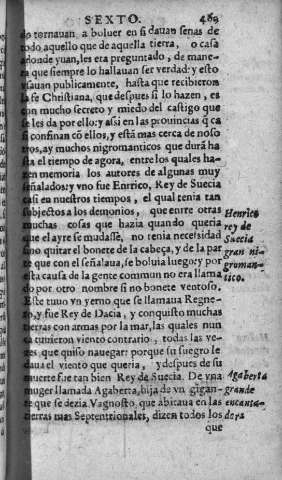 SEXTO. 469
do tornauan a boluer en si dauan señas de
todo aquello que de aquella tierra, o casa
adonde yuan, les era preguntado, de mane-
ra que siempre lo hallauan ser verdad: y esto
vsauan publicamente, hasta que recibieron
la fe Christiana, que despues si lo hazen, es
con mucho secreto y miedo del castigo que
se les da por ello: y assi en las prouincias q̃ ca
si confinan cõ ellos, y està mas cerca de noso
tros, ay muchos nigromanticos que durã ha
sta el tiempo de agora, entre los quales ha-
zen memoria los autores de algunas muy
señalados: y vno fue Enrrico, Rey de Suecia
casi en nuestros tiempos, el qual tenia tan
subjectos a los demonios, que entre otras
muchas cosas que hazia quando queria
que el ayre se mudasse, no tenia necesidad
sino quitar el bonete de la cabeça, y de la par
te que con el señalaua, se boluia luego; y por
esta causa de la gente commun no era llama
do por otro nombre si no bonete ventoso.
Este tuuo vn yerno que se llamaua Regne-
ro, y fue Rey de Dacia, y conquisto muchas
tierras con armas por la mar, las quales nun
ca tuuieron viento contrario, todas las ve-
zes, que quiso nauegar: porque su suegro le
daua el viento que queria, y despues de su
muerte fue tan bien Rey de Suecia. De vna
muger llamada Agaberta, hija de vn gigan-
te que se dezia Vagnosto, que abitaua en las
tierras mas Septentrionales, dizen todos los
que
Henrico
rey de
Suecia
gran ni-
groman-
tico.
Agaberta
grande
encanta-
dora